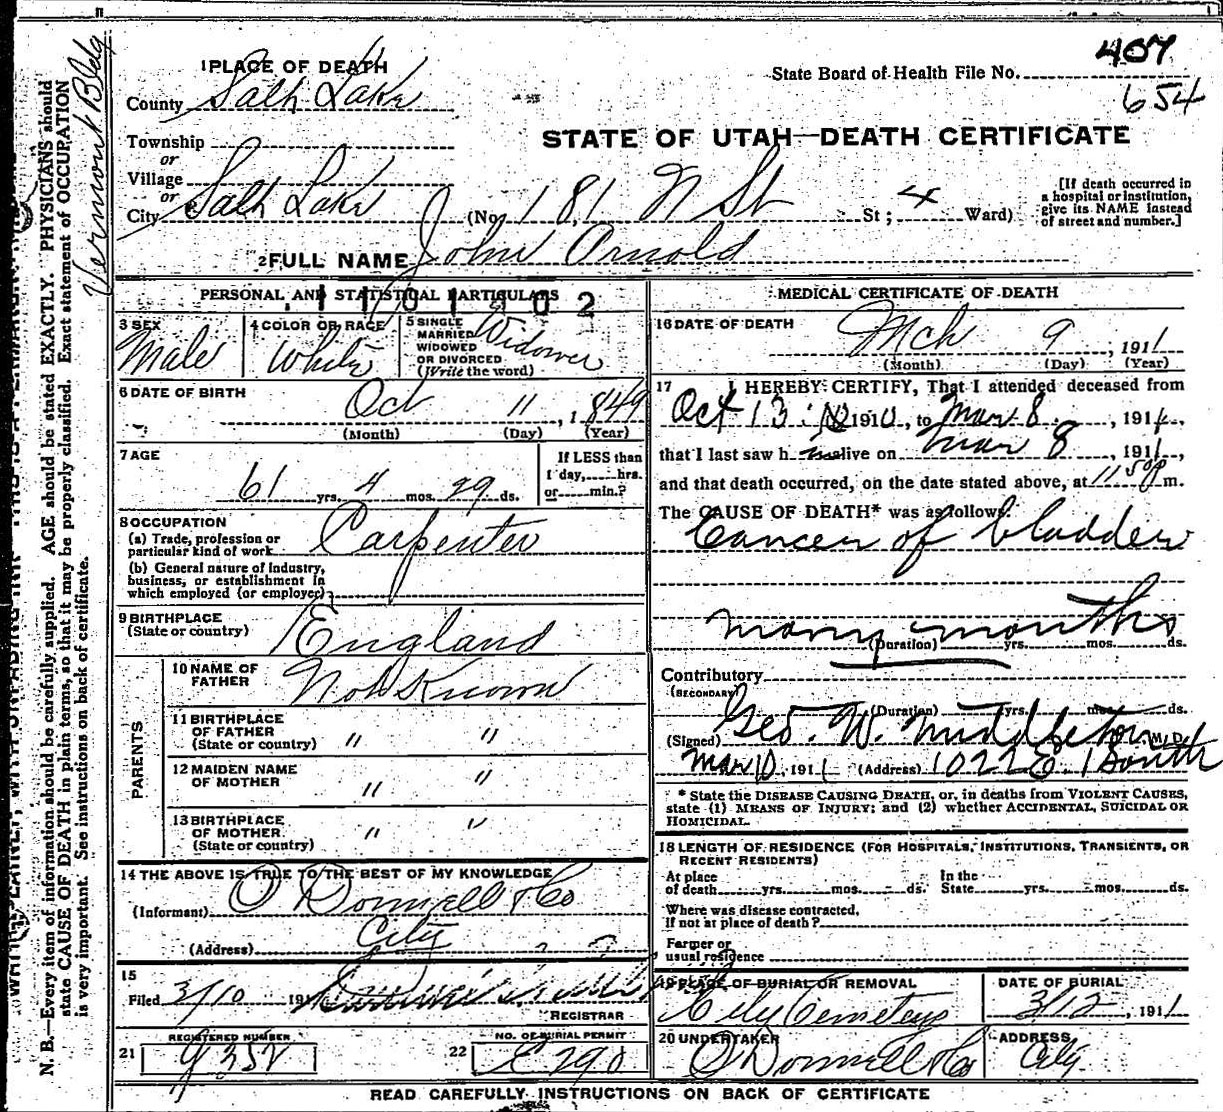 407
State Board of Health File No.
654
1 PLACE OF DEATH
County Salt Lake
STATE OF UTAH—DEATH CERTIFICATE
Township
or
Village
or
City Salt Lake (No. 181 N St St; 4 Ward)
[If death occurred in
a hospital or institution,
give its NAME instead
of street and number.]
2 FULL NAME John Arnold
Vermont Bldg
N. B.—Every item of information should be carefully supplied. AGE should be stated EXACTLY. PHYSICIANS should
state CAUSE OF DEATH in plain terms, so that it may be properly classified. Exact statement of OCCUPATION
is very important. See instructions on back of certificate.
PERSONAL AND STATISTICAL PARTICULARS
3 SEX
Male
4 COLOR OR RACE
White
5 SINGLE
MARRIED
WIDOWED
OR DIVORCED
(Write the word)
Widower
6 DATE OF BIRTH
Oct 11, 1849
(Month) (Day) (Year)
7 AGE
61 yrs. 4 mos. 29 ds.
If LESS than
1 day, hrs.
or min.?
8 OCCUPATION
(a) Trade, profession or
particular kind of work Carpenter
(b) General nature of industry,
business, or establishment in
which employed (or employer)
9 BIRTHPLACE
(State or country)
England
PARENTS
10 NAME OF
FATHER
Not Known
11 BIRTHPLACE
OF FATHER
(State or country) " "
12 MAIDEN NAME
OF MOTHER " "
13 BIRTHPLACE
OF MOTHER
(State or country) " "
14 THE ABOVE IS TRUE TO THE BEST OF MY KNOWLEDGE
(Informant) O Donnell & Co
(Address) City
15
Filed 3/10 191
REGISTRAR
REGISTERED NUMBER
21
NO. OF BURIAL PERMIT
22 E290
MEDICAL CERTIFICATE OF DEATH
16 DATE OF DEATH
Mch 9, 1911
(Month) (Day) (Year)
17 I HEREBY CERTIFY, That I attended deceased from
Oct 13 1910, to Mar 8, 1911,
that I last saw him alive on Mar 8, 1911,
and that death occurred, on the date stated above, at 11 50 p m.
The CAUSE OF DEATH* was as follows:
Cancer of bladder
many months
(Duration) yrs. mos. ds.
Contributory
(SECONDARY)
(Duration) yrs. mos. ds.
(Signed) Geo. W. Middleton, M.D.
Mar 10, 1911 (Address) 1022 E. 1 South
* State the DISEASE CAUSING DEATH, or, in deaths from VIOLENT CAUSES,
state (1) MEANS OF INJURY; and (2) whether ACCIDENTAL, SUICIDAL OR
HOMICIDAL.
18 LENGTH OF RESIDENCE (FOR HOSPITALS, INSTITUTIONS, TRANSIENTS, OR
RECENT RESIDENTS)
At place
of death yrs. mos. ds.
In the
State yrs. mos. ds.
Where was disease contracted,
if not at place of death?
Farmer or
usual residence
19 PLACE OF BURIAL OR REMOVAL
City Cemetery
DATE OF BURIAL
3/12, 1911
20 UNDERTAKER
O Donnell & Co
ADDRESS
City
READ CAREFULLY INSTRUCTIONS ON BACK OF CERTIFICATE